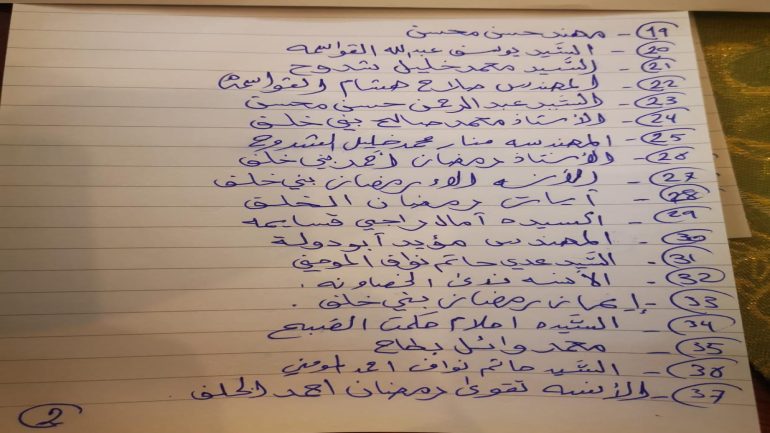 19 - مهند حسن محسن
20 - السيد يوسف عبدالله القواسمه
21 - السيد محمد خليل شدوح
22 - المهندس صلاح هشام القواسمة
23 - السيد عبد الرحمن حسن محسن
24 - الاستاذ محمد صالح بني خلف
25 - المهندسه منار محمد خليل الشدوح
26 - الاستاذ رمضان أحمد بني خلف
27 - الآنسه آلاء رمضان بني خلف
28 - آيات رمضان الخلف
29 - السيده آمال راجي قسايمه
30 - المهندس مؤيد أبو دولة
31 - السيد عدي حاتم نواف المومني
32 - الآنسه ندى الخصاونه .
33 - إيمان رمضان بني خلف .
34 - السيده احلام حكمت الصبح
35 - محمد وائل بطاح
36 - السيد حاتم نواف احمد المومني
37 - الآنسه تقوى رمضان احمد الخلف .
2